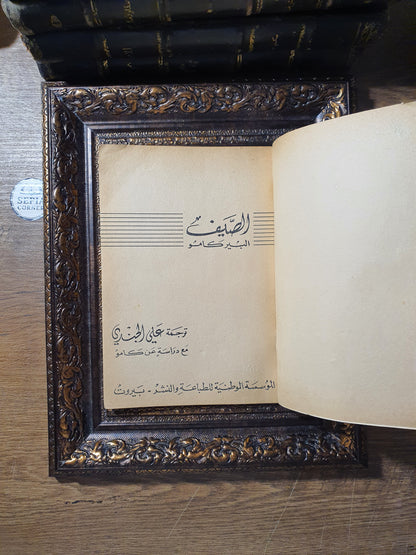 الصَّيف
البير كامو
ترجمة علي الجندي
مع دراسة عن كامو
المؤسسة الوطنية للطباعة والنشر - بيروت
SEPIA
CORNER